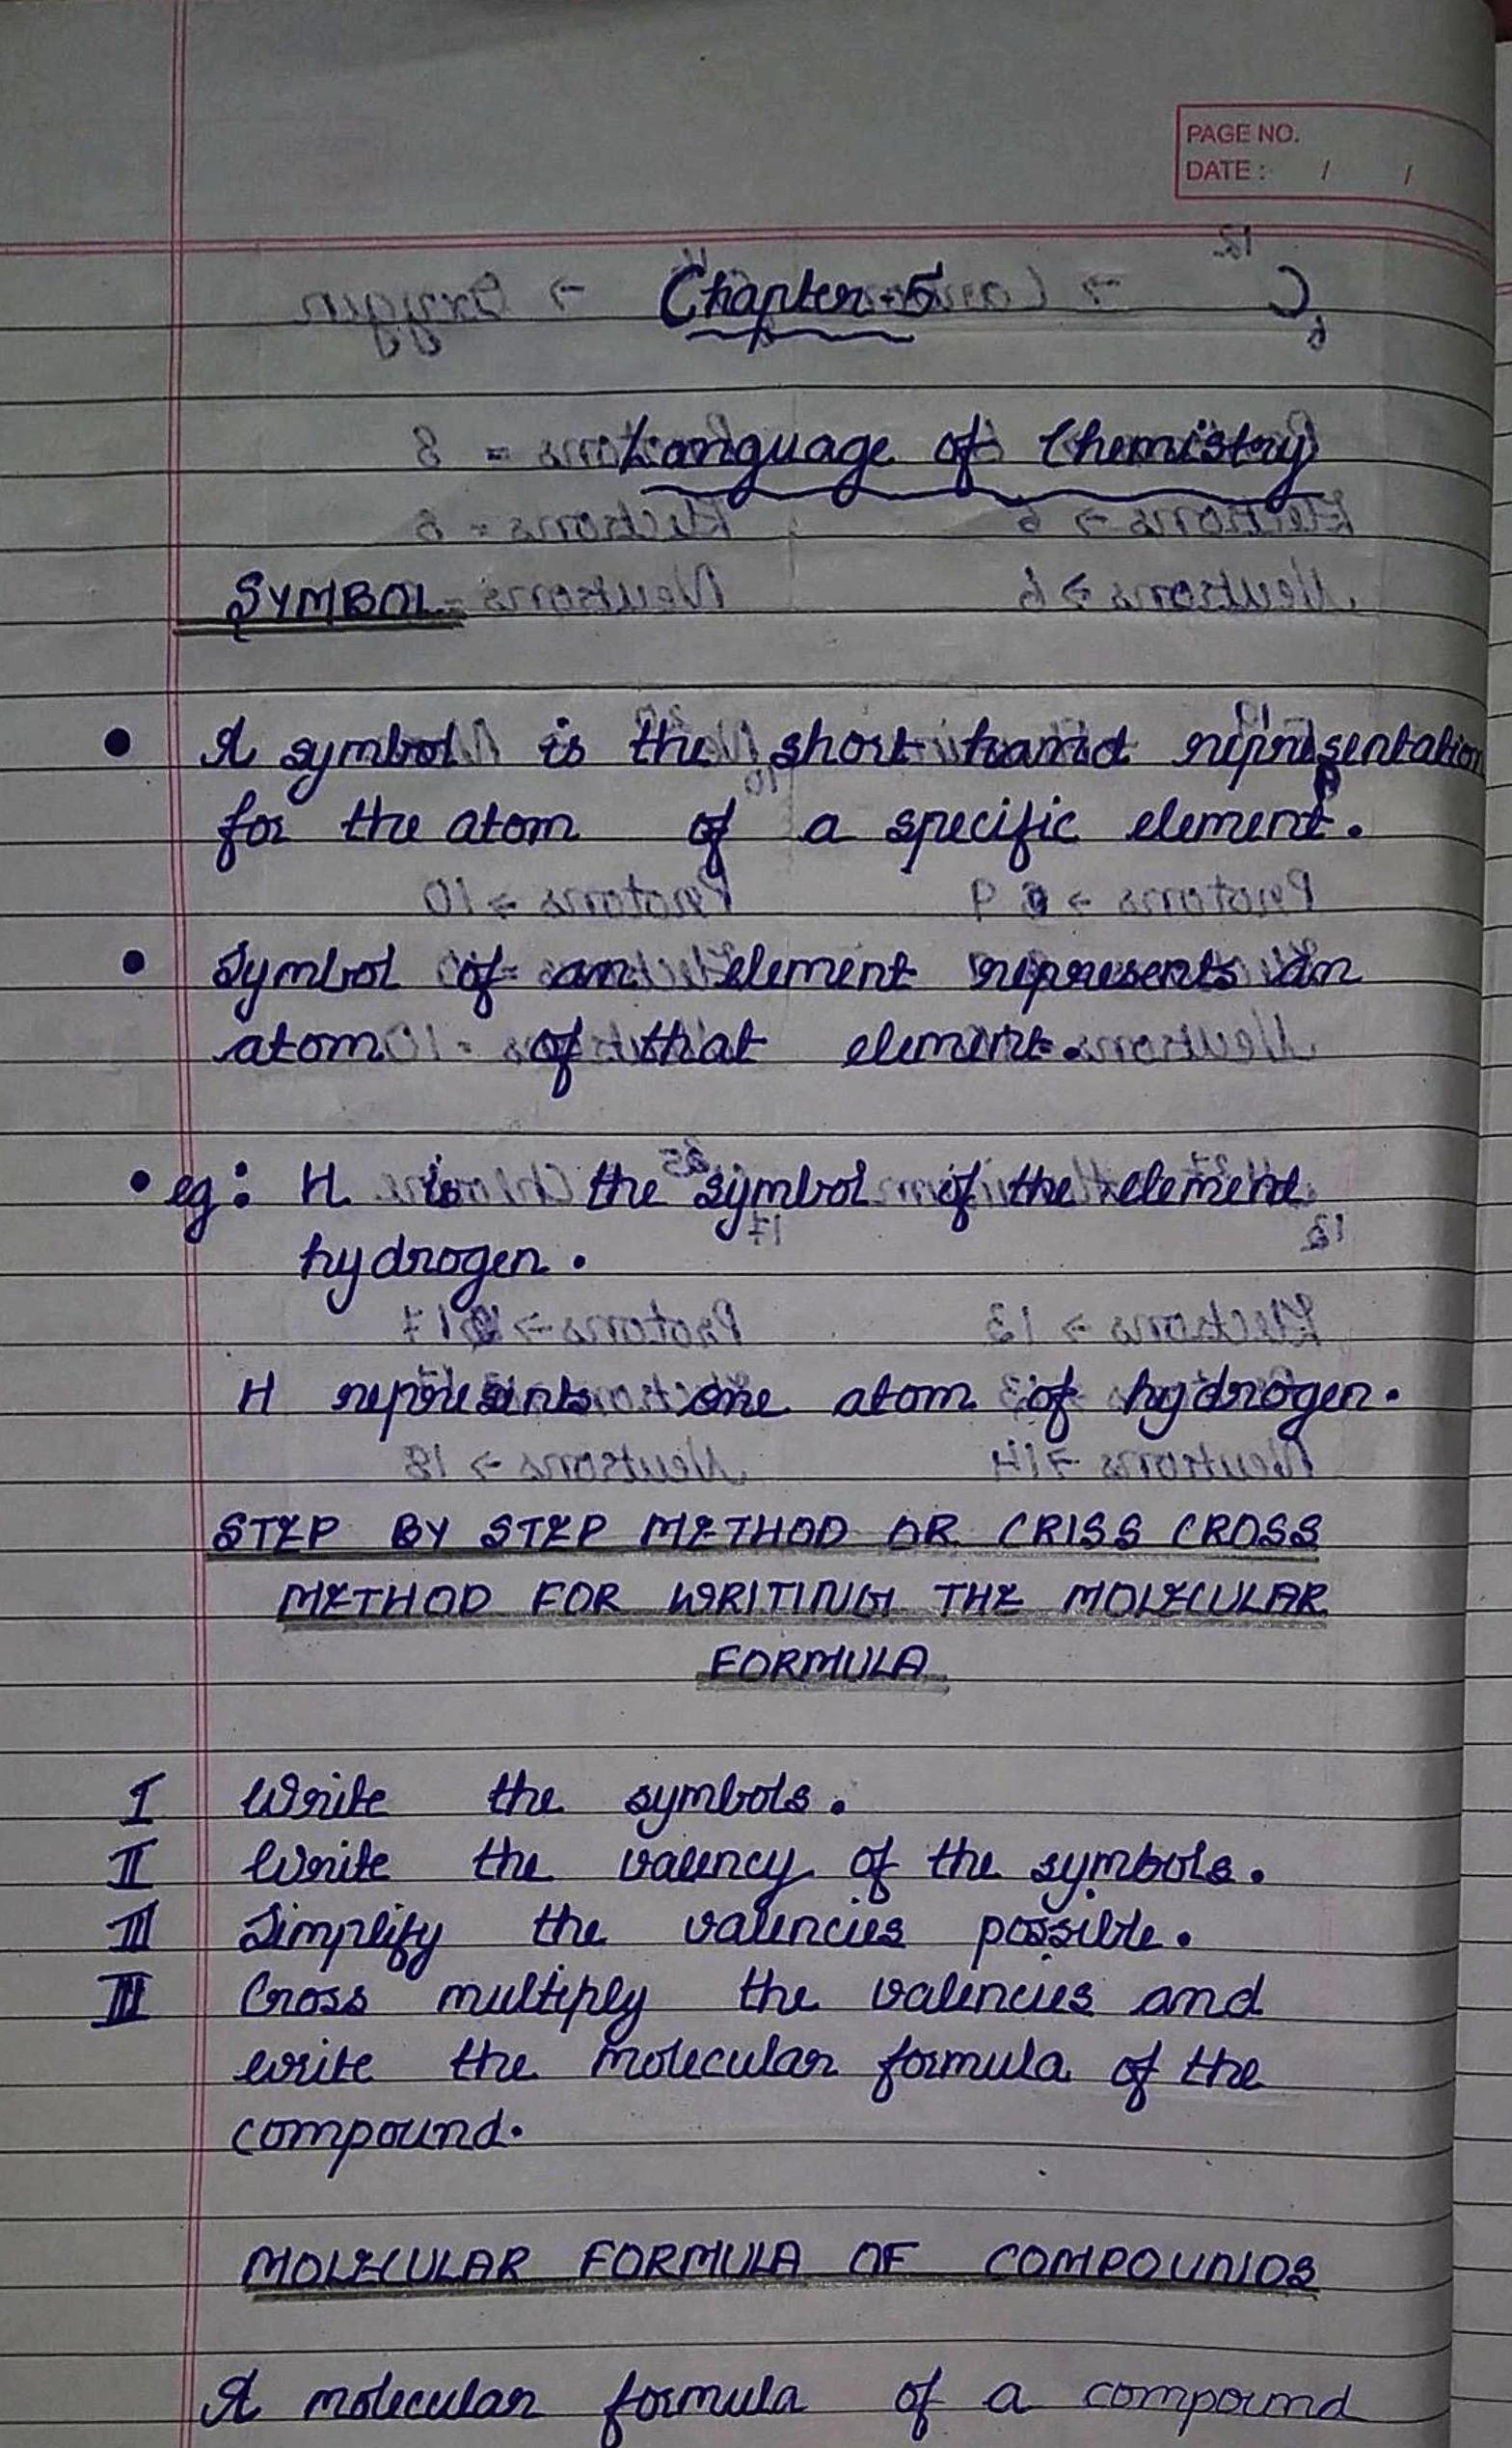 PAGE NO.
DATE : / /
Chapter-5
Language of Chemistry
SYMBOL
• A symbol is the short hand representation
for the atom of a specific element.
• Symbol of an element represents an
atom of that element.
• eg: H is the symbol of the element
hydrogen.
H represents one atom of hydrogen.
STEP BY STEP METHOD OR CRISS CROSS
METHOD FOR WRITING THE MOLECULAR
FORMULA
I Write the symbols.
II Write the valency of the symbols.
III Simplify the valencies possible.
III Cross multiply the valencies and
write the molecular formula of the
compound.
MOLECULAR FORMULA OF COMPOUNDS
A molecular formula of a compound